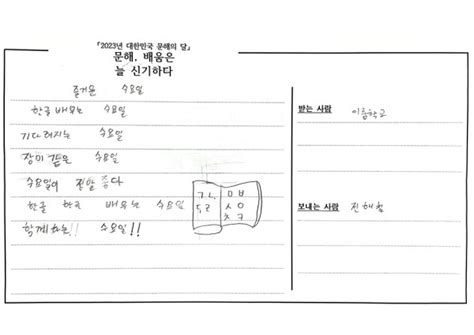 「2023년 대한민국 문해의 달」
문해, 배움은
늘 신기하다
즐거운 수요일
한글 배우는 수요일
기다려지는 수요일
장미 같은 수요일
수요일이 정말 좋다
한글 한국 배우는 수요일
함께하는!! 수요일!!
ㄱ ㄴ
ㄷ ㄹ
ㅁ ㅂ
ㅅ ㅇ
ㅊ ㅋ
받는 사람 이름학교
보내는 사람 진해첨